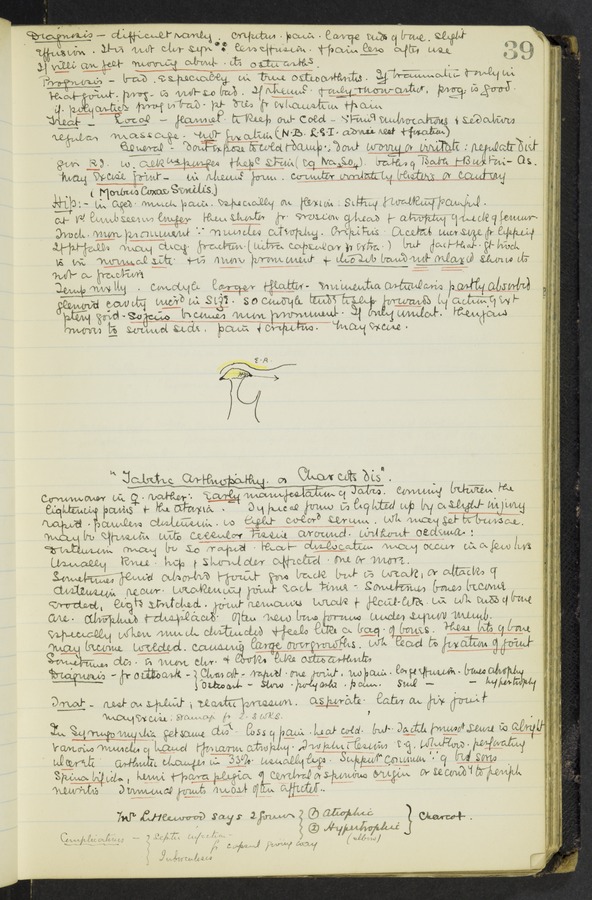 39
Diagnosis - difficult rarely. crepitus. pain. large ends of bone. slight
effusion. It is not chr syn ∵ less effusion. & pain less after use
If villi are felt moving about. its osteoarths.
Prognosis - bad. especially in true osteoarthritis. If traumatic & only in
that joint. prog. is not so bad. If rheumc & only monoartic. prog is good.
if polyartic prog is bad. pt dies fr exhaustion & pain
Treat - Local - flannel to keep out cold - Stim embrocations & sedatives
regular massage. not fixation (N.B. R.S.I. advise rest & fixation)
General - Dont expose to cold & damp; dont worry or irritate: regulate diet
give KI. w. alkne purges & hepc stim (eg Na2So4) baths of Bath & Buxton - As.
may Excise joint - in rheumc form. counter irritate by blisters or cautery
(Morbus Coxae Senilis)
Hip:- in aged. much pain. especially on flexion: sitting & walking painful.
at 1st limb seems longer then shorter fr erosion of head & atrophy of neck of femur
Troch. more prominent ∵ muscles atrophy. Crepitus. Acetab. incr size fr lipping
If pt falls may diag fracture (intra capsular or extra) but fact that gt troch
is in normal site & is more prominent & ilio tib band not relaxd shows its
not a fracture
Temp mxlly. condyle larger & flatter. Eminentia articularis partly absorbd
glenoid cavity incrd in size. so condyle tends to slip forwards by action of ext
pterygoid. So jaw becomes more prominent. If only unilat. then jaw
moves to sound side. pain & crepitus. may excise.
E.A
"Tabetic Arthropathy. or Charcots dis".
Commoner in ♀. rather: Early manifestation of Tabes. coming between the
lightening pains & the ataxia. Typical form is lighted up by a slight injury
rapid. painless distension. w light colord serum. wh may get to bursae.
may be effusion into cellular tissue around. without oedema:
Distension may be so rapid that dislocation may occur in a few hrs
Usually knee. hip & shoulder affected. one or more.
Sometimes fluid absorbd & joint goes back but is weak, or attacks of
distension recur. weakening joint each time - Sometimes bones become
eroded, ligts stretched. joint remains weak & flail-like in wh ends of bone
are. atrophied & displaced. Often new bone forms under synov memb.
Especially when much distended & feels like a bag of bones. These bits of bone
may become welded. causing large overgrowths. wh lead to fixation of joint
Sometimes dis. is more chr. & looks like osteoarthritis
Diagnosis - fr osteoarth - Charcot - rapid. one joint. no pain. large effusion. bones atrophy
Osteoart - slow. polyartic. pain. small - - hypertrophy
Treat - rest on splint; elastic pressure. asperate. later on fix joint
may excise
In Syringomyelia get same dis. loss of pain. heat cold. but Tactile & musc sense is alright
various muscles of hand & forearm atrophy. Trophic lesions e.g. whitlow. perforating
ulcer etc arthritic changes in 33%. usually large. Suppn common ∵ of bed sores
Spina bifida, hemi & para plegia of cerebral or spinous origin or secondy to periph
neuritis Terminal joints most often affected.
Mr Littlewood says 2 forms (1) Atrophic
(2) Hypertrophic Charcot.
Complications - Septic infection
Tuberculosis
fr capsul giving way